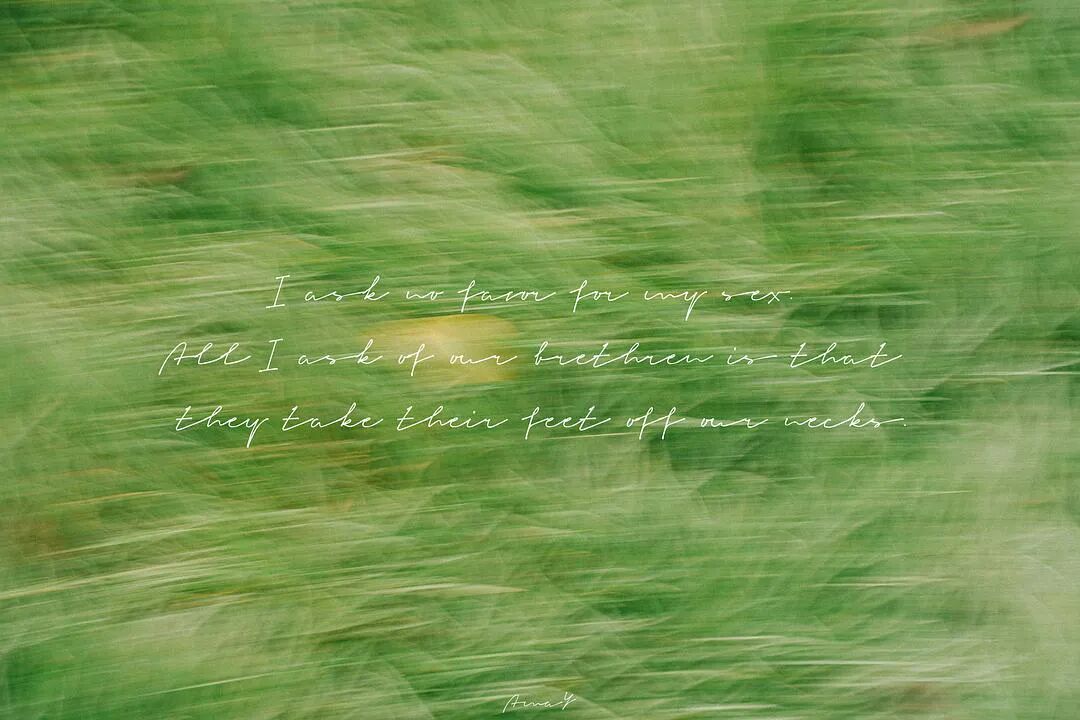 I ask no favor for my sex.
All I ask of our brethren is that
they take their feet off our necks.